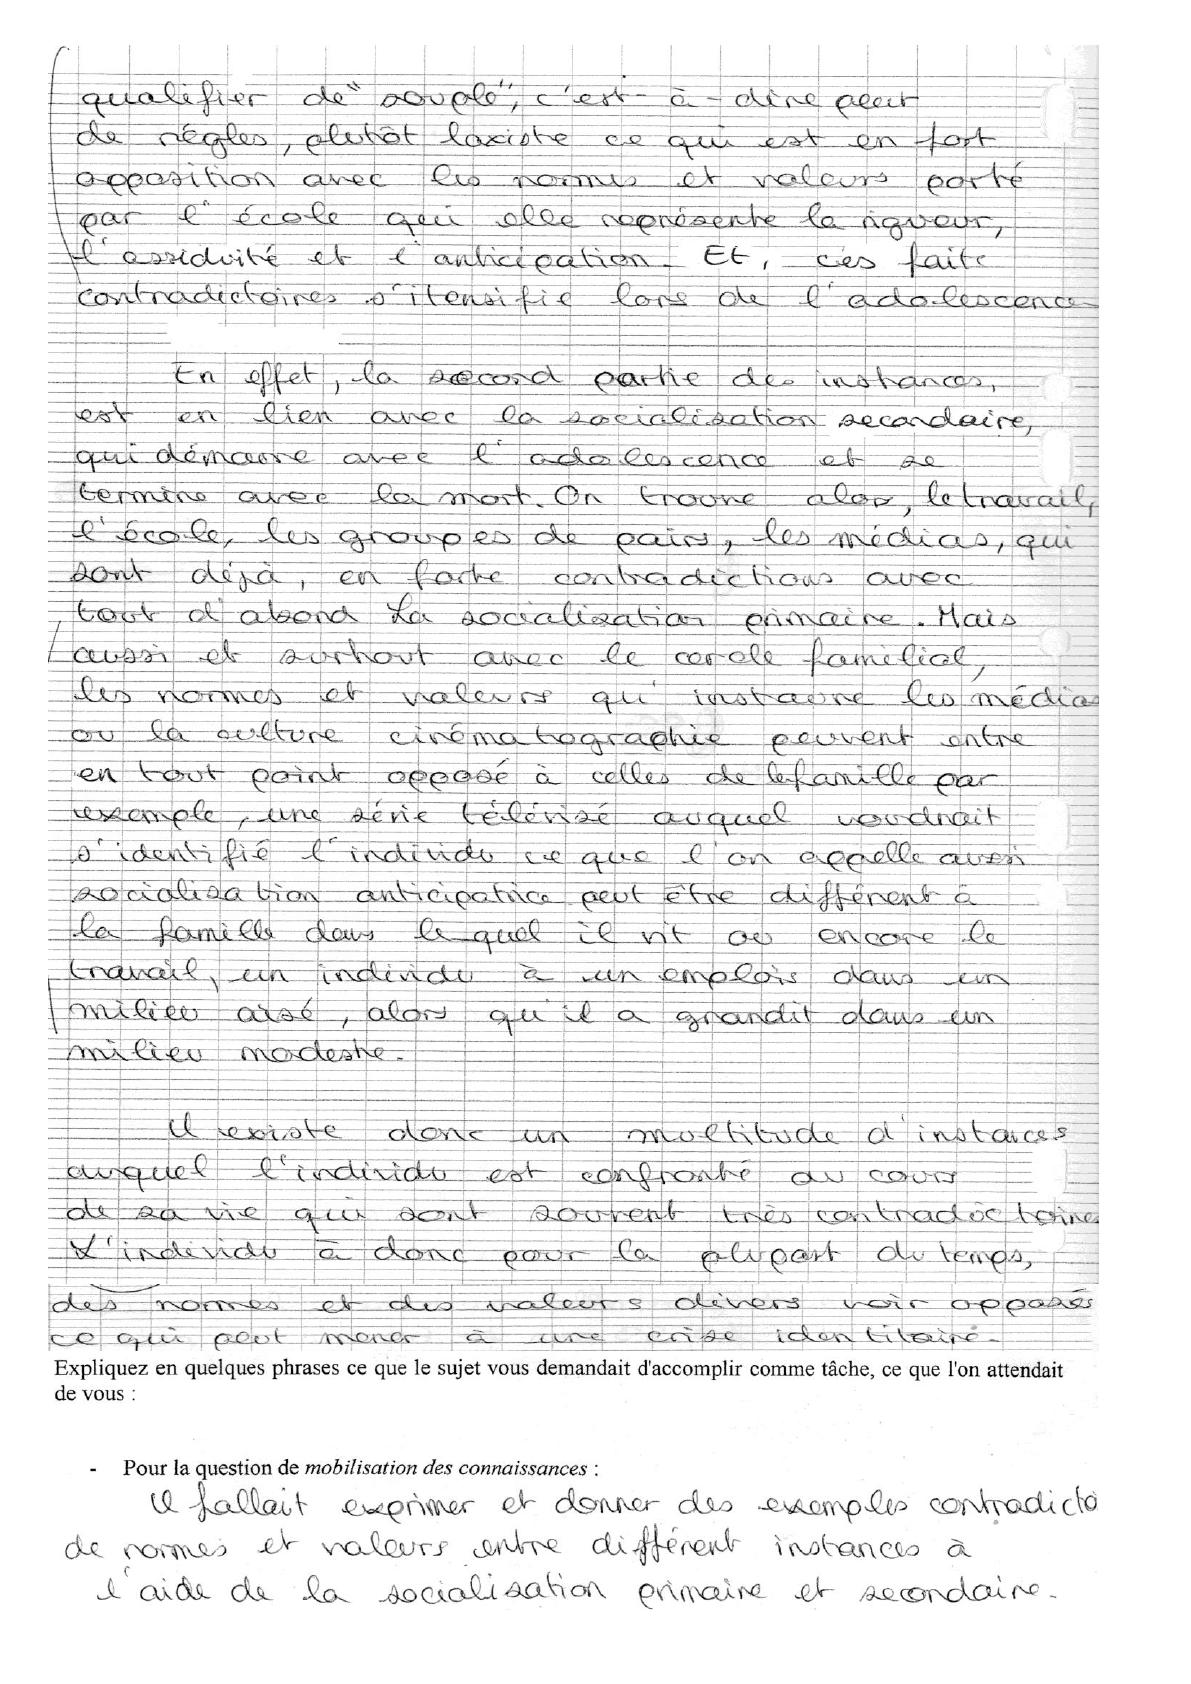 qualifier de "souple", c'est-à-dire peut
de règles, plutôt laxiste ce qui est en fort
opposition avec les normes et valeurs porté
par l'école qui elle représente la rigueur,
l'assiduité et l'anticipation. Et, ces faits
contradictoires s'itensifie lors de l'adolescence
En effet, la second partie des instances,
est en lien avec la socialisation secondaire,
qui démarre avec l'adolescence et se
termine avec la mort. On trouve alors, le travail,
l'école, les groupes de pairs, les médias, qui
sont déjà, en forte contradictions avec
tout d'abord la socialisation primaire. Mais
aussi et surtout avec le cercle familial,
les normes et valeurs qu'instaure les médias
ou la culture cinématographie peuvent entre
en tout point opposé à celles de la famille par
exemple, une série télévisé auquel voudrait
s'identifié l'individu ce que l'on appelle aussi
socialisation anticipatrice peut être différent à
la famille dans lequel il vit ou encore le
travail, un individu à un emplois dans un
milieu aisé, alors qu'il a grandit dans un
milieu modeste.
Il existe donc un multitude d'instances
auquel l'individu est confronté au cours
de sa vie qui sont souvent très contradictoires
L'individu à donc pour la plupart du temps,
des normes et des valeurs divers voir opposés
ce qui peut mener à une crise identitaire.
Expliquez en quelques phrases ce que le sujet vous demandait d'accomplir comme tâche, ce que l'on attendait
de vous :
- Pour la question de mobilisation des connaissances :
Il fallait exprimer et donner des exemples contradicto
de normes et valeurs entre différent instances à
l'aide de la socialisation primaire et secondaire.